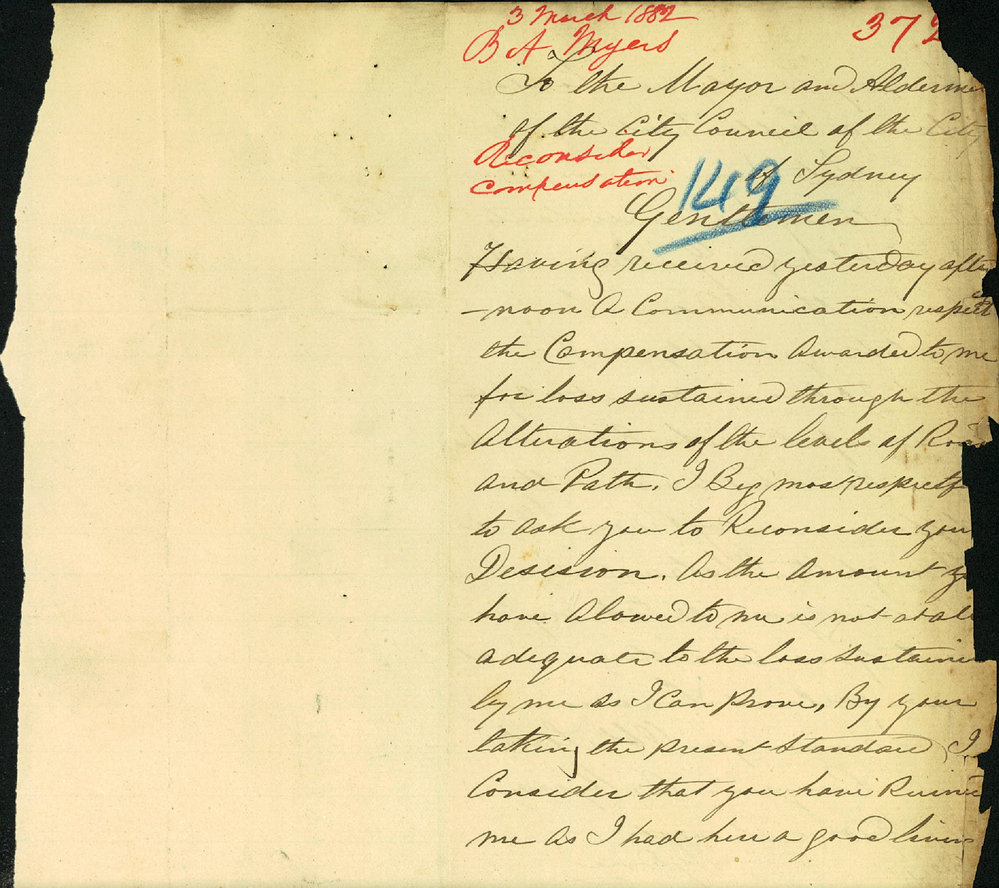 3 March 1882
372
B A Myers
To the Mayor and Alderme
of the City Council of the City
Reconsider
compensation
of Sydney
149
Gentlemen
Having received yesterday afte
-noon A Communication respect
the Compensation Awarded to me
for loss sustained through the
Alterations of the level of Roa
and Path. I Beg most respectf
to ask you to Reconsider you
Desision. As the Amount y
have Alowed to me is not atall
adequate to the loss sustaine
by me as I Can prove, By your
taking the present Standard, I
Consider that you have Ruine
me As I had here a good livin